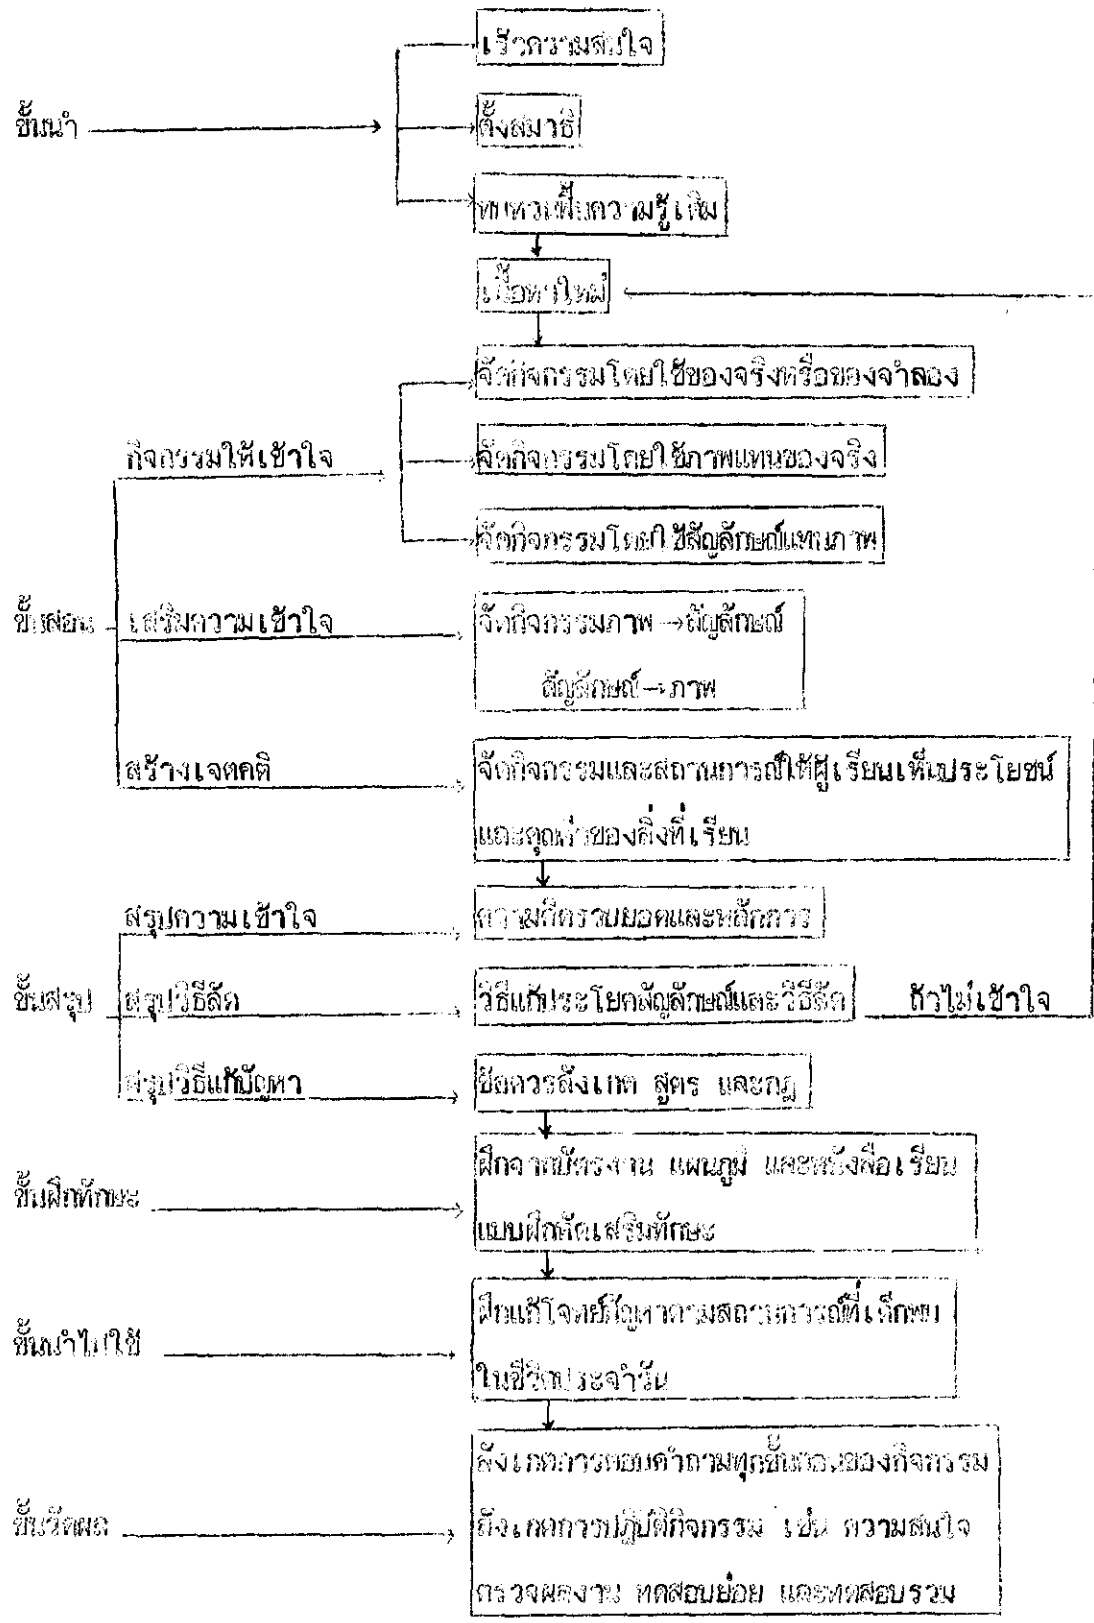 เร้าความสนใจ
ขั้นนำ
ตั้งสมาธิ
ทบทวนพื้นความรู้เดิม
เนื้อหาใหม่
จัดกิจกรรมโดยใช้ของจริงหรือของจำลอง
กิจกรรมให้เข้าใจ
จัดกิจกรรมโดยใช้ภาพแทนของจริง
จัดกิจกรรมโดยใช้สัญลักษณ์แทนภาพ
ขั้นสอน
เสริมความเข้าใจ
จัดกิจกรรมภาพ→สัญลักษณ์
สัญลักษณ์→ภาพ
สร้างเจตคติ
จัดกิจกรรมและสถานการณ์ให้ผู้เรียนเห็นประโยชน์
และคุณค่าของสิ่งที่เรียน
สรุปความเข้าใจ
ความคิดรวบยอดและหลักการ
ขั้นสรุป
สรุปวิธีลัด
วิธีแก้ประโยคสัญลักษณ์และวิธีลัด
ถ้าไม่เข้าใจ
สรุปวิธีแก้ปัญหา
ข้อควรสังเกต สูตร และกฎ
ขั้นฝึกทักษะ
ฝึกจากบัตรงาน แผนภูมิ และหนังสือเรียน
แบบฝึกหัดเสริมทักษะ
ขั้นนำไปใช้
ฝึกแก้โจทย์ปัญหาตามสถานการณ์ที่เด็กพบ
ในชีวิตประจำวัน
ขั้นวัดผล
สังเกตการตอบคำถามทุกขั้นตอนของกิจกรรม
สังเกตการปฏิบัติกิจกรรม เช่น ความสนใจ
ตรวจผลงาน ทดสอบย่อย และทดสอบรวม